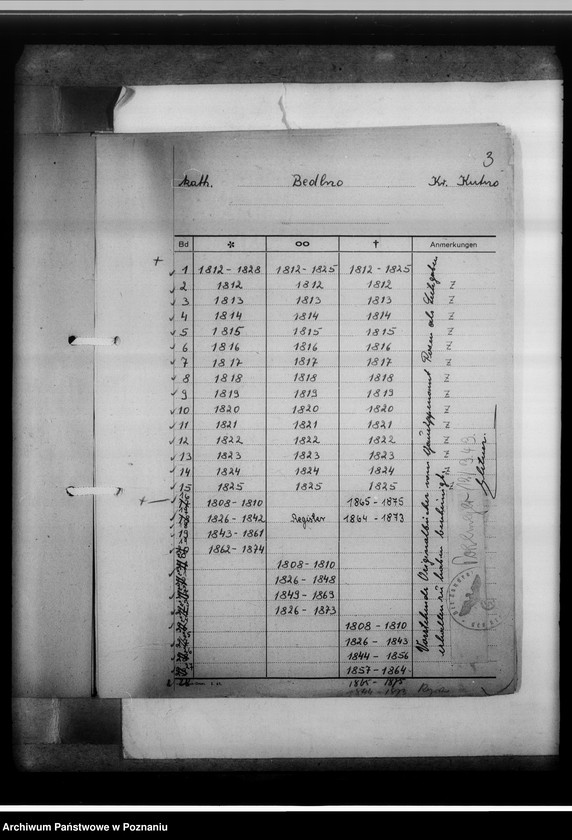 3
kath. Bedlno Kr. Kutno
Bd * ∞ † Anmerkungen
1 1812 - 1828 1812 - 1825 1812 - 1825
2 1812 1812 1812 Z
3 1813 1813 1813 Z
4 1814 1814 1814 Z
5 1815 1815 1815 Z
6 1816 1816 1816 Z
7 1817 1817 1817 Z
8 1818 1818 1818 Z
9 1819 1819 1819 Z
10 1820 1820 1820 Z
11 1821 1821 1821 Z
12 1822 1822 1822 Z
13 1823 1823 1823 Z
14 1824 1824 1824
15 1825 1825 1825
1808 - 1810 1865 - 1875
1826 - 1842 Register 1864 - 1873
1843 - 1861
1862 - 1874
1808 - 1810
1826 - 1848
1849 - 1869
1826 - 1873
1808 - 1810
1826 - 1843
1844 - 1856
1857 - 1864
1865 - 1875
Vorstehende Originalbücher vom Gausippenamt Posen als Leihgaben
erhalten zu haben bescheinigt:
Archiwum Państwowe w Poznaniu